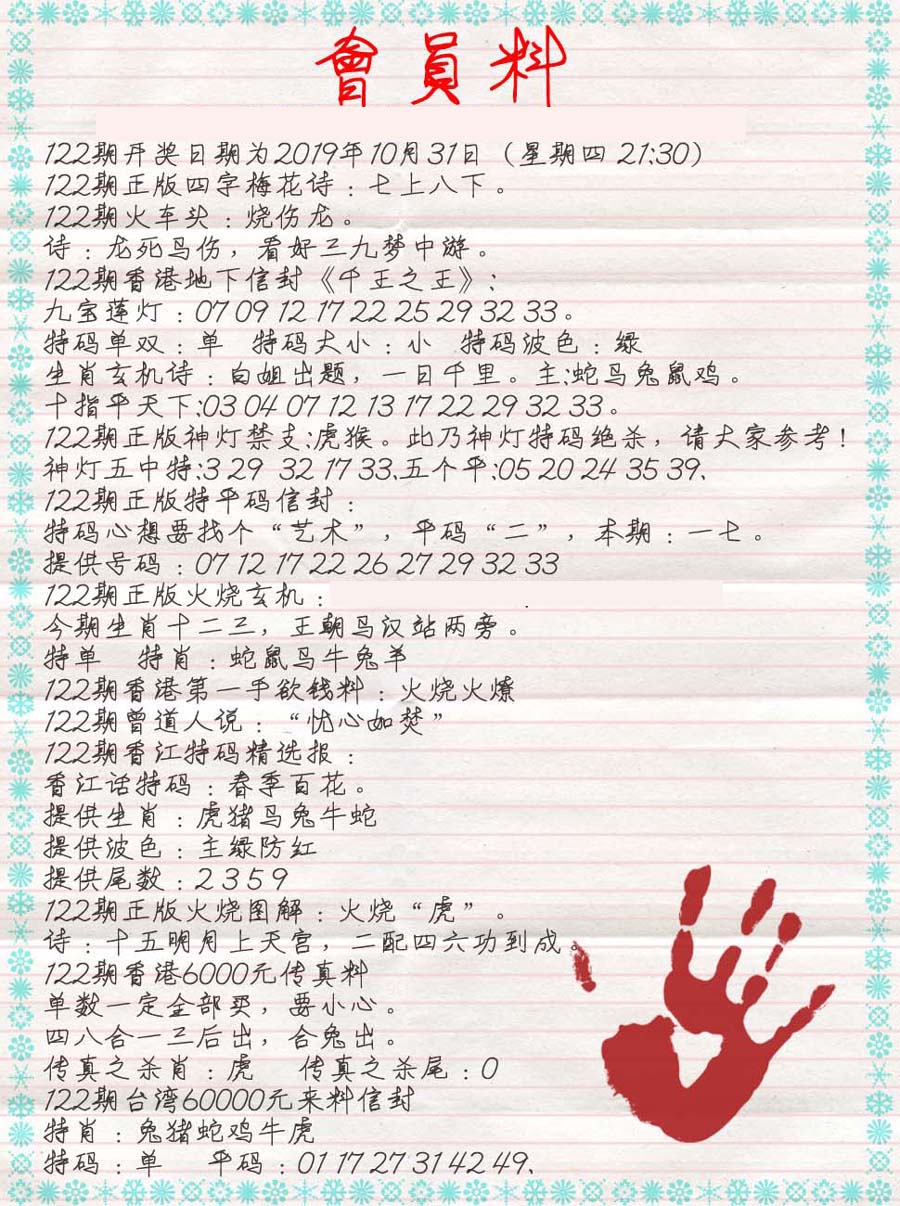 會員料
122期开奖日期为2019年10月31日（星期四 21:30）
122期正版四字梅花诗：七上八下。
122期火车头：烧伤龙。
诗：龙死鸟伤，看好三九梦中游。
122期香港地下信封《千王之王》:
九宝莲灯：07 09 12 17 22 25 29 32 33。
特码单双：单 特码大小：小 特码波色：绿
生肖玄机诗：白姐出题，一日千里。主:蛇鸟兔鼠鸡。
十指平天下:03 04 07 12 13 17 22 29 32 33。
122期正版神灯禁支:虎猴。此乃神灯特码绝杀，请大家参考！
神灯五中特:3 29 32 17 33.五个平:05 20 24 35 39.
122期正版特平码信封：
特码心想要找个“艺术”，平码“二”，本期：一七。
提供号码：07 12 17 22 26 27 29 32 33
122期正版火烧玄机：
今期生肖十二三，王朝鸟汉站两旁。
特单 特肖：蛇鼠鸟牛兔羊
122期香港第一手欲钱料：火烧火燎
122期曾道人说：“忧心如焚”
122期香江特码精选报：
香江话特码：春季百花。
提供生肖：虎猪鸟兔牛蛇
提供波色：主绿防红
提供尾数：2 3 5 9
122期正版火烧图解：火烧“虎”。
诗：十五明月上天宫，二配四六功到成。
122期香港6000元传真料
单数一定全部买，要小心。
四八合一三后出，合兔出。
传真之杀肖：虎 传真之杀尾：0
122期台湾60000元来料信封
特肖：兔猪蛇鸡牛虎
特码：单 平码：01 17 27 31 42 49.